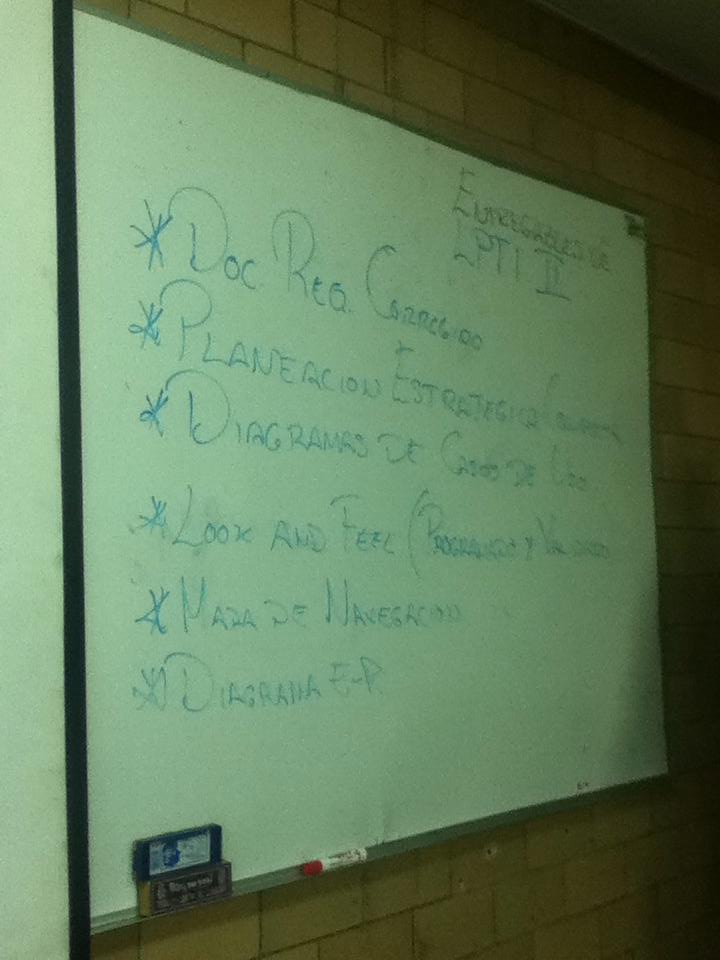 ENTREGABLES DE
LPTI II
* DOC. REQ. CORREGIDO
* PLANEACION ESTRATEGICA
* DIAGRAMAS DE CASOS DE USO
* LOOK AND FEEL (PROGRAMADO Y VALIDADO
* MAPA DE NAVEGACION
* DIAGRAMA E-R